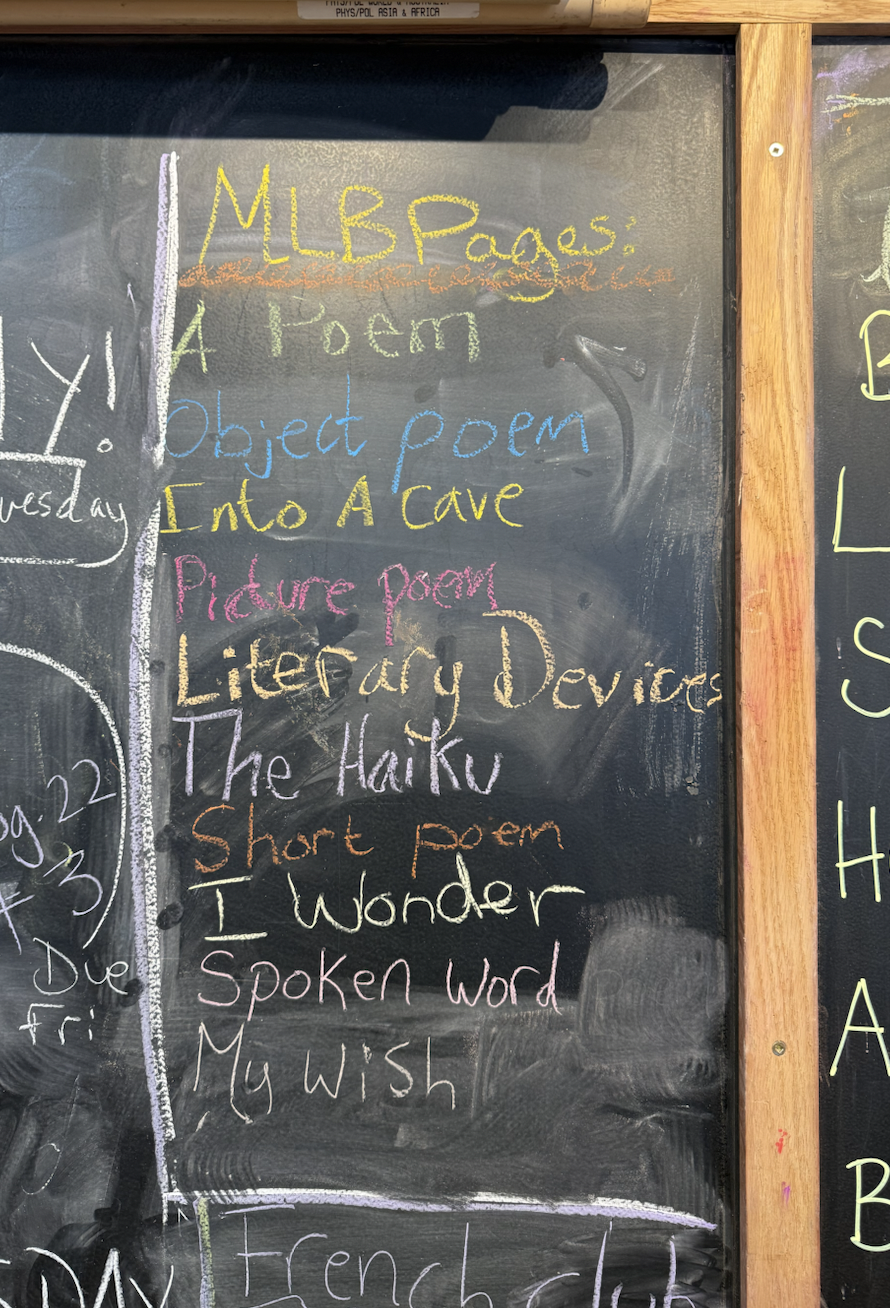 PHYS/POL ASIA & AFRICA
MLB Pages:
A Poem
Object poem
Into A cave
Picture poem
Literary Devices
The Haiku
Short poem
I Wonder
Spoken word
My wish
ly!
uesday
pg. 22
# 3
Due
Fri
French club
SDAY
B
L
S
H
A
B